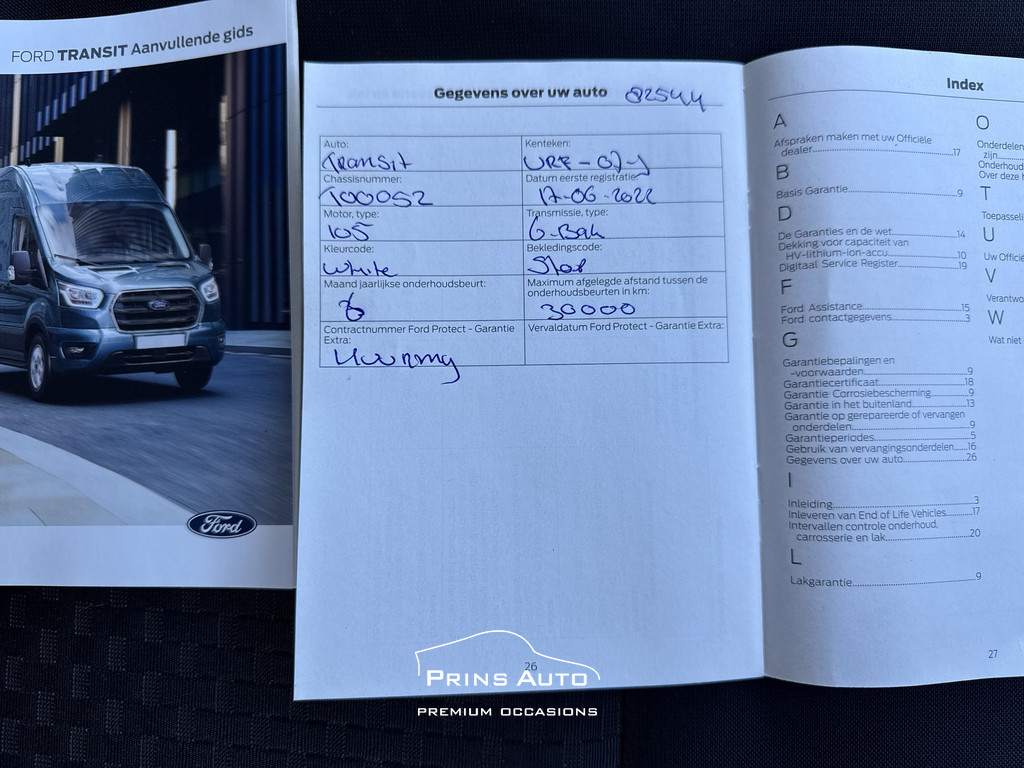 FORD TRANSIT Aanvullende gids
Ford
Gegevens over uw auto 82544
Auto:
Transit
Kenteken:
Chassisnummer:
T00052
Datum eerste registratie:
17-06-2022
Motor, type:
105
Transmissie, type:
6-Bak
Kleurcode:
White
Bekledingscode:
Stof
Maand jaarlijkse onderhoudsbeurt:
6
Maximum afgelegde afstand tussen de
onderhoudsbeurten in km:
30000
Contractnummer Ford Protect - Garantie
Extra:
Vervaldatum Ford Protect - Garantie Extra:
26
PRINS AUTO
PREMIUM OCCASIONS
Index
A
Afspraken maken met uw Officiële
dealer..........17
B
Basis Garantie..........9
D
De Garanties en de wet..........14
Dekking voor capaciteit van
HV-lithium-ion-accu..........10
Digitaal Service Register..........19
F
Ford Assistance..........15
Ford contactgegevens..........3
G
Garantiebepalingen en
-voorwaarden..........9
Garantiecertificaat..........18
Garantie Corrosiebescherming..........9
Garantie in het buitenland..........13
Garantie op gerepareerde of vervangen
onderdelen..........9
Garantieperiodes..........5
Gebruik van vervangingsonderdelen..........16
Gegevens over uw auto..........26
I
Inleiding..........3
Inleveren van End of Life Vehicles..........17
Intervallen controle onderhoud,
carrosserie en lak..........20
L
Lakgarantie..........9
O
Onderdelen
zijn
Onderhoud
Over deze
T
U
Uw Officië
V
W
Wat niet
27